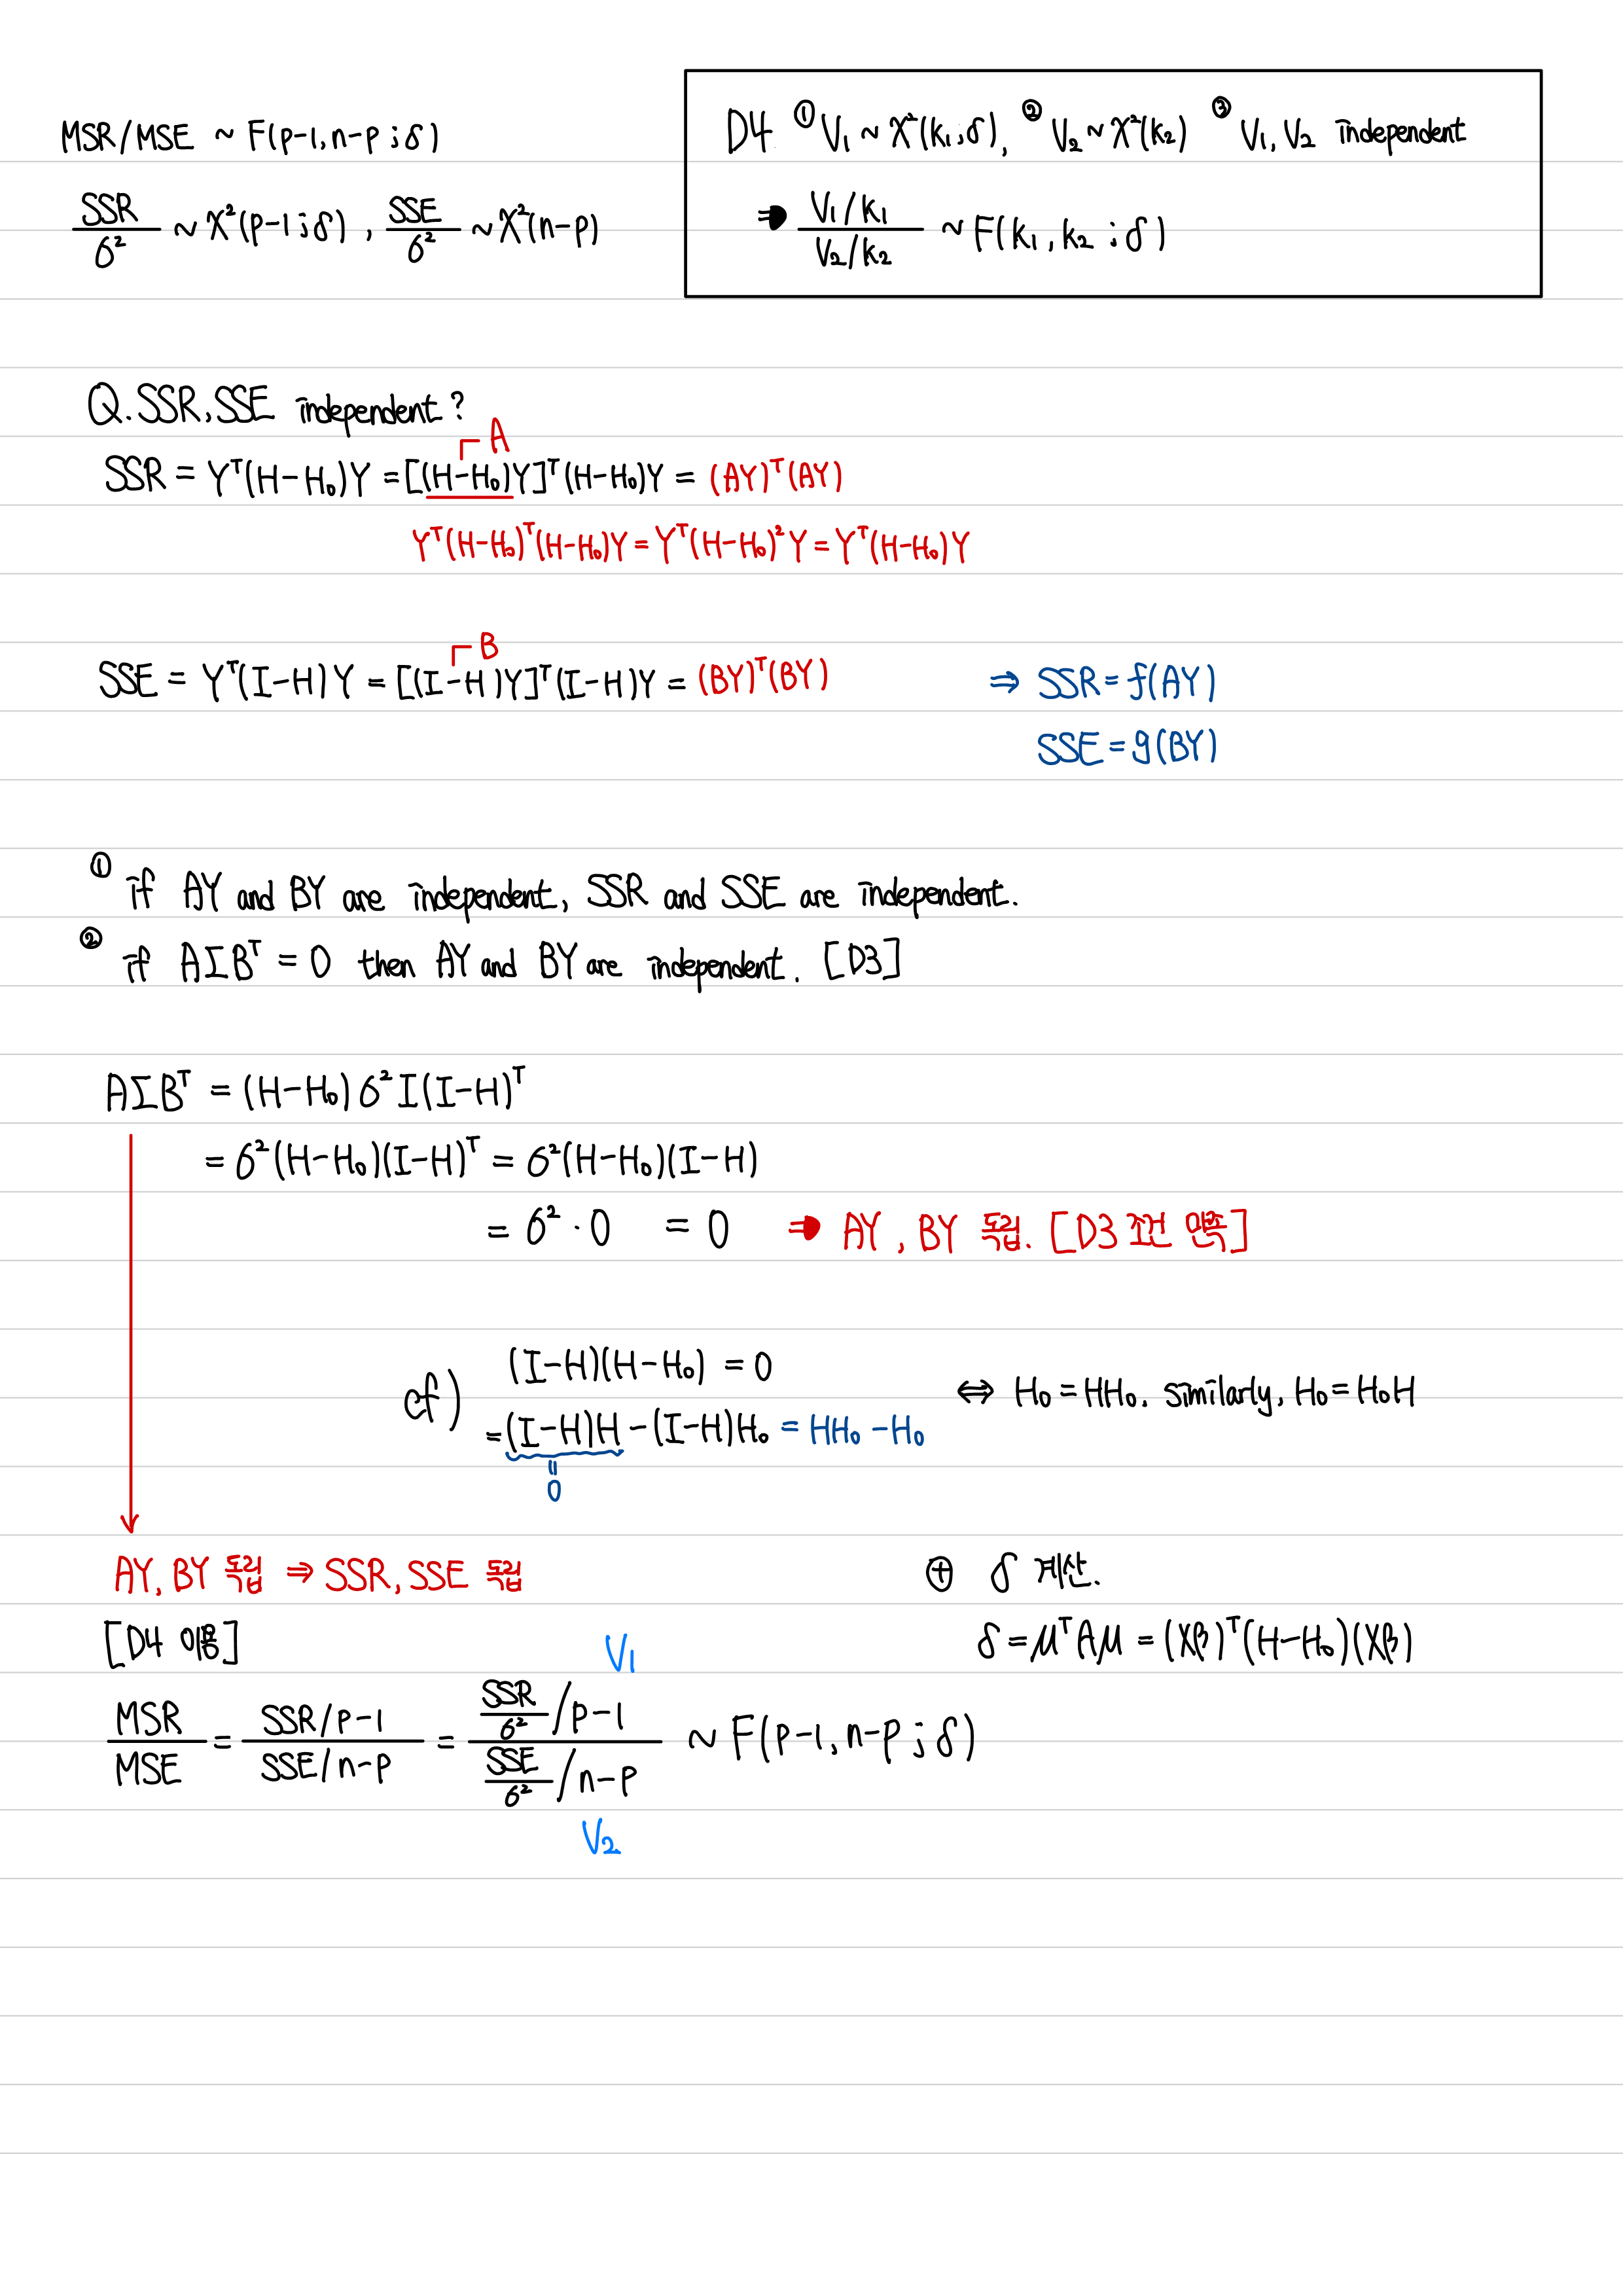 MSR/MSE ~ F(p-1, n-p ; δ)
SSR/σ² ~ χ²(p-1 ; δ) , SSE/σ² ~ χ²(n-p)
D4. ① V₁ ~ χ²(k₁;δ), ② V₂ ~ χ²(k₂) ③ V₁, V₂ independent
⇒ (V₁/k₁)/(V₂/k₂) ~ F(k₁, k₂ ; δ)
Q. SSR, SSE independent?
A
SSR = Yᵀ(H-H₀)Y = [(H-H₀)Y]ᵀ(H-H₀)Y = (AY)ᵀ(AY)
Yᵀ(H-H₀)ᵀ(H-H₀)Y = Yᵀ(H-H₀)²Y = Yᵀ(H-H₀)Y
B
SSE = Yᵀ(I-H)Y = [(I-H)Y]ᵀ(I-H)Y = (BY)ᵀ(BY) ⇒ SSR = f(AY)
SSE = g(BY)
① if AY and BY are independent, SSR and SSE are independent.
② if AΣBᵀ = 0 then AY and BY are independent. [D3]
AΣBᵀ = (H-H₀)σ²I(I-H)ᵀ
= σ²(H-H₀)(I-H)ᵀ = σ²(H-H₀)(I-H)
= σ² · 0 = 0 ⇒ AY, BY 독립. [D3 조건 만족]
cf) (I-H)(H-H₀) = 0
= (I-H)H - (I-H)H₀ = HH₀ - H₀ ⇔ H₀ = HH₀. similarly, H₀ = H₀H
=
0
AY, BY 독립 ⇒ SSR, SSE 독립
[D4 이용]
V₁
MSR/MSE = (SSR/p-1)/(SSE/n-p) = (SSR/σ² /p-1)/(SSE/σ² /n-p) ~ F(p-1, n-p ; δ)
V₂
⊕ δ 계산.
δ = μᵀAμ = (Xβ)ᵀ(H-H₀)(Xβ)